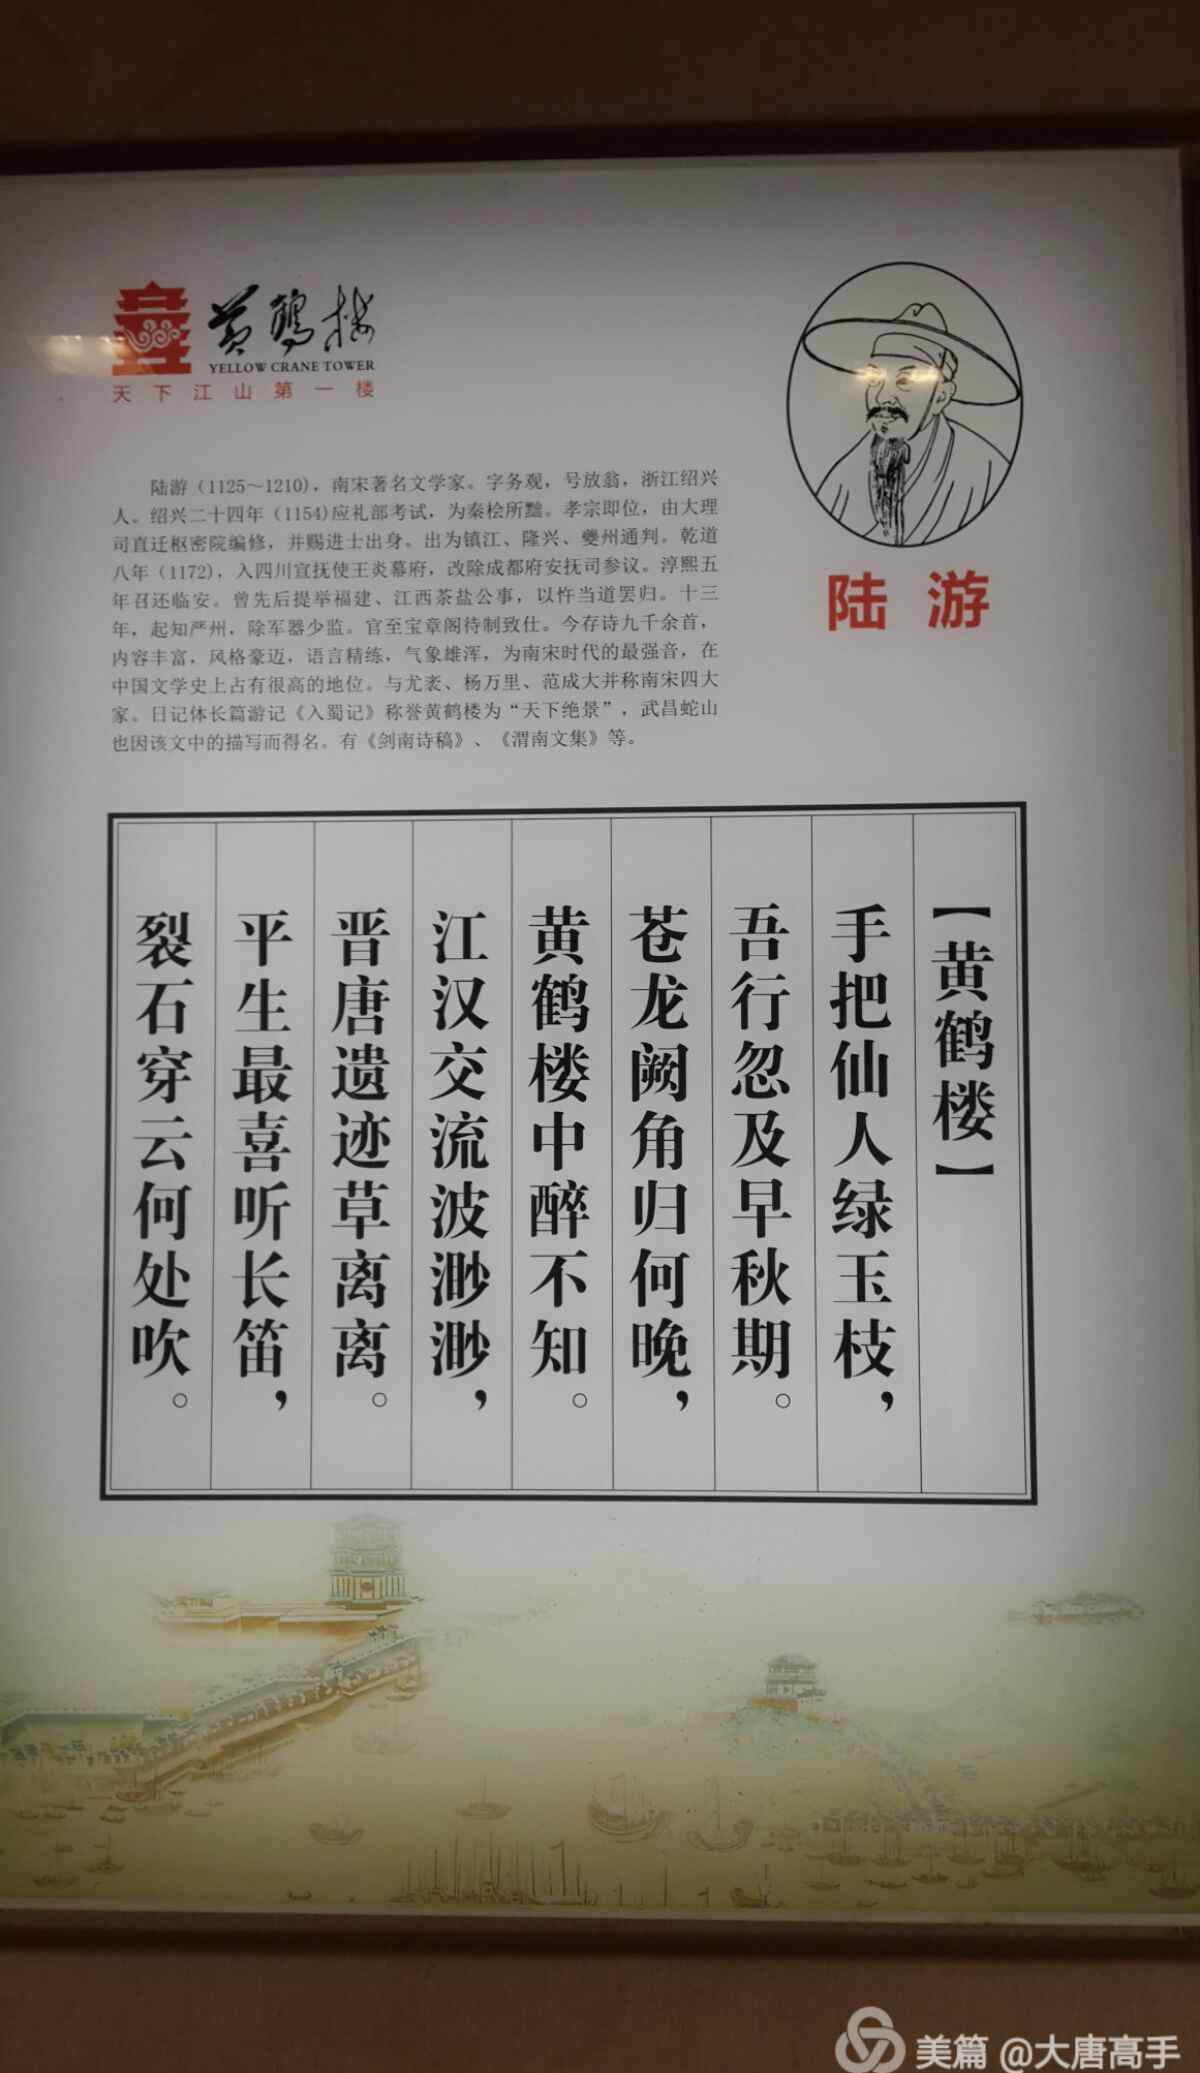 黄鹤楼
YELLOW CRANE TOWER
天下江山第一楼
陆游（1125～1210），南宋著名文学家。字务观，号放翁，浙江绍兴
人。绍兴二十四年（1154)应礼部考试，为秦桧所黜。孝宗即位，由大理
司直迁枢密院编修，并赐进士出身。出为镇江、隆兴、夔州通判。乾道
八年（1172），入四川宣抚使王炎幕府，改除成都府安抚司参议。淳熙五
年召还临安。曾先后提举福建、江西茶盐公事，以忤当道罢归。十三
年，起知严州，除军器少监。官至宝章阁待制致仕。今存诗九千余首，
内容丰富，风格豪迈，语言精练，气象雄浑，为南宋时代的最强音，在
中国文学史上占有很高的地位。与尤袤、杨万里、范成大并称南宋四大
家。日记体长篇游记《入蜀记》称誉黄鹤楼为“天下绝景”，武昌蛇山
也因该文中的描写而得名。有《剑南诗稿》、《渭南文集》等。
陆游
【黄鹤楼】
手把仙人绿玉枝，
吾行忽及早秋期。
苍龙阙角归何晚，
黄鹤楼中醉不知。
江汉交流波渺渺，
晋唐遗迹草离离。
平生最喜听长笛，
裂石穿云何处吹。
美篇 @大唐高手